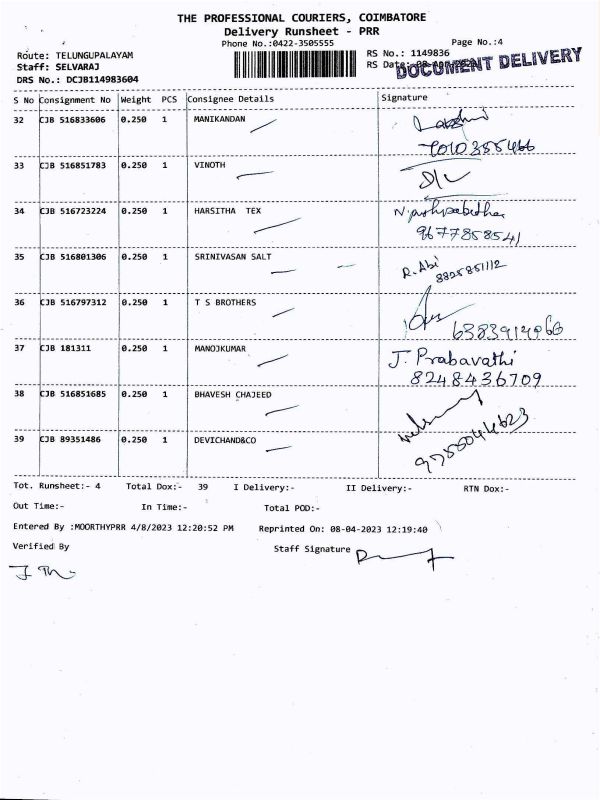 THE PROFESSIONAL COURIERS, COIMBATORE
Delivery Runsheet - PRR
Phone No.:0422-3505555
Page No.:4
Route: TELUNGUPALAYAM
RS No.: 1149836
Staff: SELVARAJ
RS Date:
DOCUMENT DELIVERY
DRS No.: DCJB114983604
S No Consignment No Weight PCS Consignee Details Signature
32 CJB 516833606 0.250 1 MANIKANDAN
7010355466
33 CJB 516851783 0.250 1 VINOTH
34 CJB 516723224 0.250 1 HARSITHA TEX
9677858541
35 CJB 516801306 0.250 1 SRINIVASAN SALT R. Abi
8825851112
36 CJB 516797312 0.250 1 T S BROTHERS
37 CJB 181311 0.250 1 MANOJKUMAR J. Prabavathi
8248436709
38 CJB 516851685 0.250 1 BHAVESH CHAJEED
39 CJB 89351486 0.250 1 DEVICHAND&CO
Tot. Runsheet:- 4 Total Dox:- 39 I Delivery:- II Delivery:- RTN Dox:-
Out Time:- In Time:- Total POD:-
Entered By :MOORTHYPRR 4/8/2023 12:20:52 PM Reprinted On: 08-04-2023 12:19:40
Verified By Staff Signature